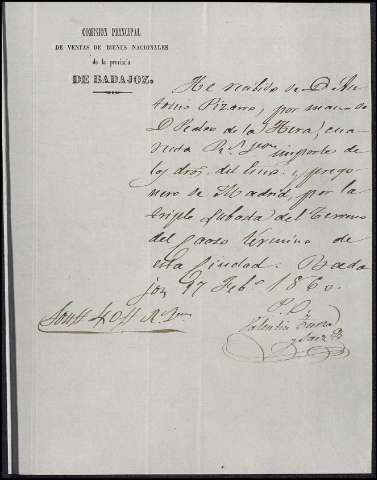 COMISION PRINCIPAL
DE VENTAS DE BIENES NACIONALES
de la provincia
DE BADAJOZ.
He recibido de D. An
tonio Pizarro, por mano de
D. Pedro de la Hera, cua
renta R.s importe de
los dros. del y prego
nero de Madrid, por la
triple subasta del Terreno
del término de
esta Ciudad. Bada
joz 17 Feb.o 1860.
Son 40 R.s
Valentin